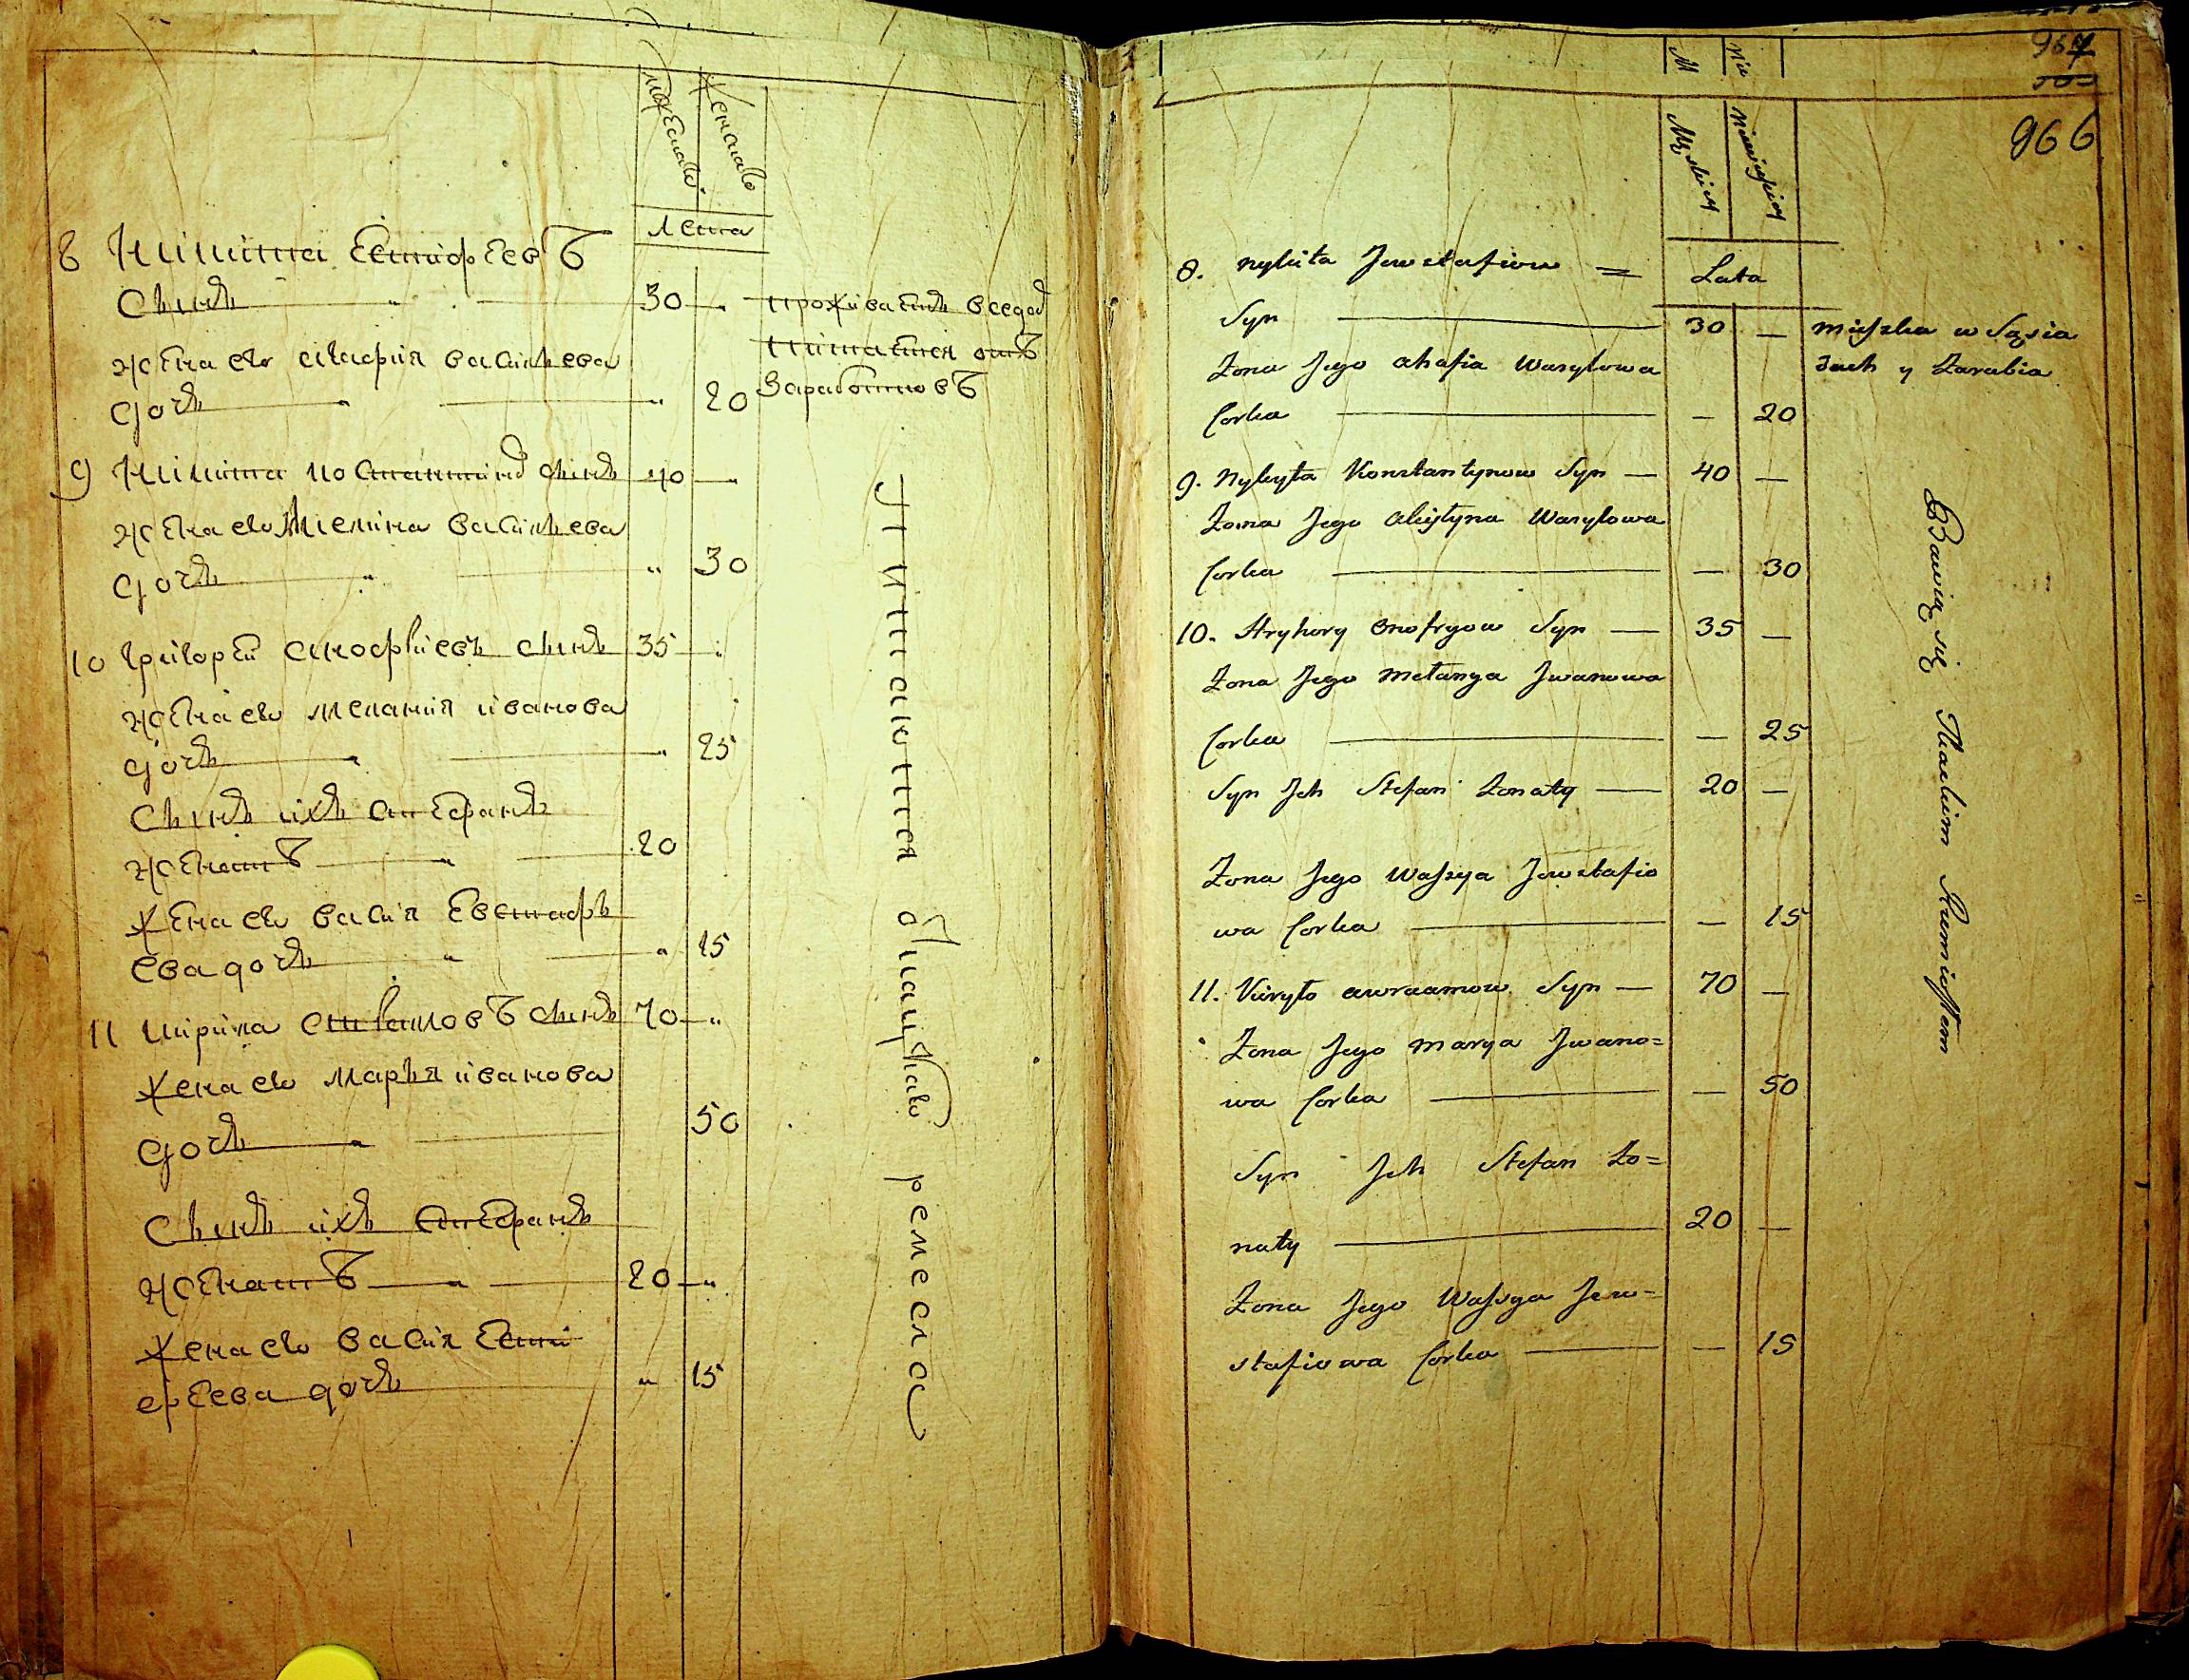 мужеска
женска
лета
8 Никита Естафеевъ
сынъ 30 проживаитъ вседоб
питаится отъ
жена его Агафия васильева
заработковъ
дочь 20
9 Никита костантинов сынъ 40
жена его васильева
дочь 30
10 григорей онофриевъ сынъ 35
жена его мелания иванова
дочь 25
сынъ ихъ стефанъ
женатъ 20
жена его васия Евстафь
ева дочь 15
11 кирила сынъ 70
жена его марья иванова
дочь 50
сынъ ихъ стефанъ
женатъ 20
жена его васия Еста
феева дочь 15
Питаются ремесла
967
966
M Nie
Męskiey
Niewieskiey
Lata
8. Nykita Jewstafiow =
Syn 30 — mieszka w Sąsia
Żona Jego ahafia Wasylowa
dach y Zarabia
Corka — 20
9. Nykyta Konstantynow Syn — 40 —
Żona Jego Wasylowa
Corka — 30
10. Hryhory onofryow Syn — 35 —
Żona Jego Melanya Jwanowa
Corka — 25
Syn Jch Stefan Żonaty — 20 —
Żona Jego Wassya Jewstafio
wa Corka — 15
11. Kiryło awraamow Syn — 70 —
Żona Jego marya Jwano=
wa Corka — 50
Syn Jch Stefan Żo=
naty 20 —
Żona Jego Wassya Jew=
stafiowa Corka — 15
Bawią się Tkackim Rzemiosłem